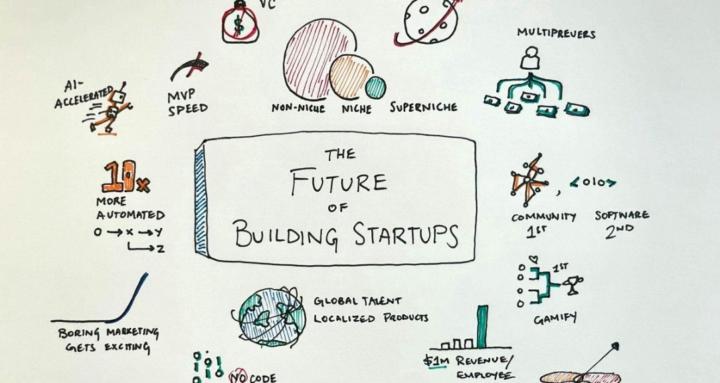 VC
$
MULTIPREUERS
AI-
ACCELERATED
MVP
SPEED
NON-NICHE NICHE SUPERNICHE
THE
FUTURE
OF
BUILDING STARTUPS
10x
MORE
AUTOMATED
O → X → Y
→ Z
, <010>
COMMUNITY SOFTWARE
1ST 2ND
1ST
GAMIFY
GLOBAL TALENT
LOCALIZED PRODUCTS
BORING MARKETING
GETS EXCITING
$1M REVENUE/
EMPLOYEE
NO CODE